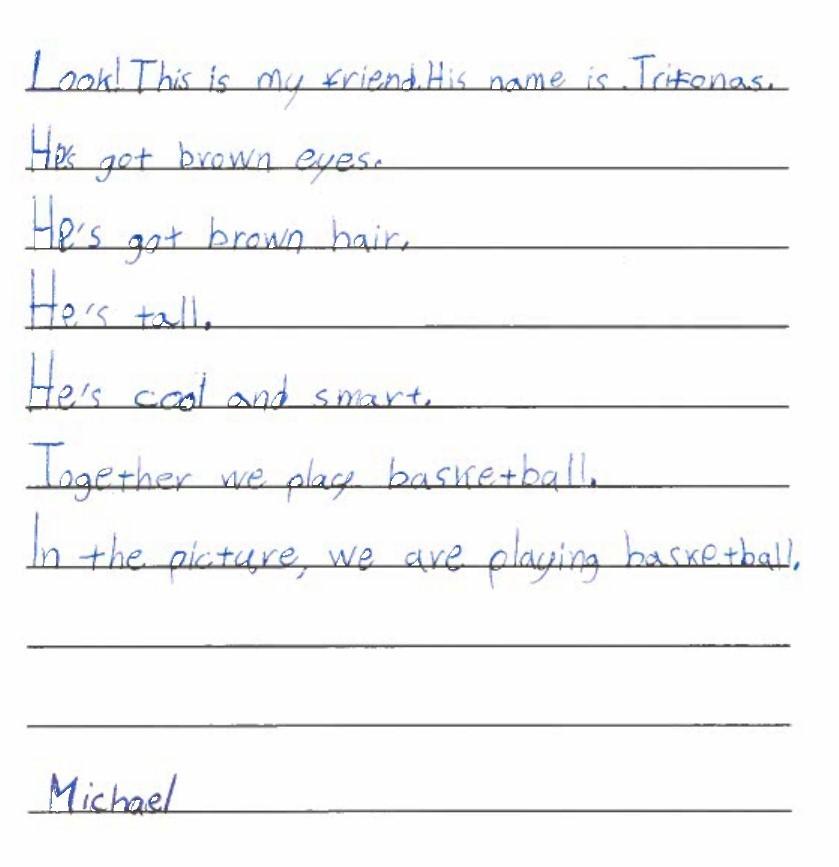 Look! This is my friend. His name is Trifonas.
He's got brown eyes.
He's got brown hair.
He's tall.
He's cool and smart.
Together we play basketball.
In the picture, we are playing basketball.
Michael